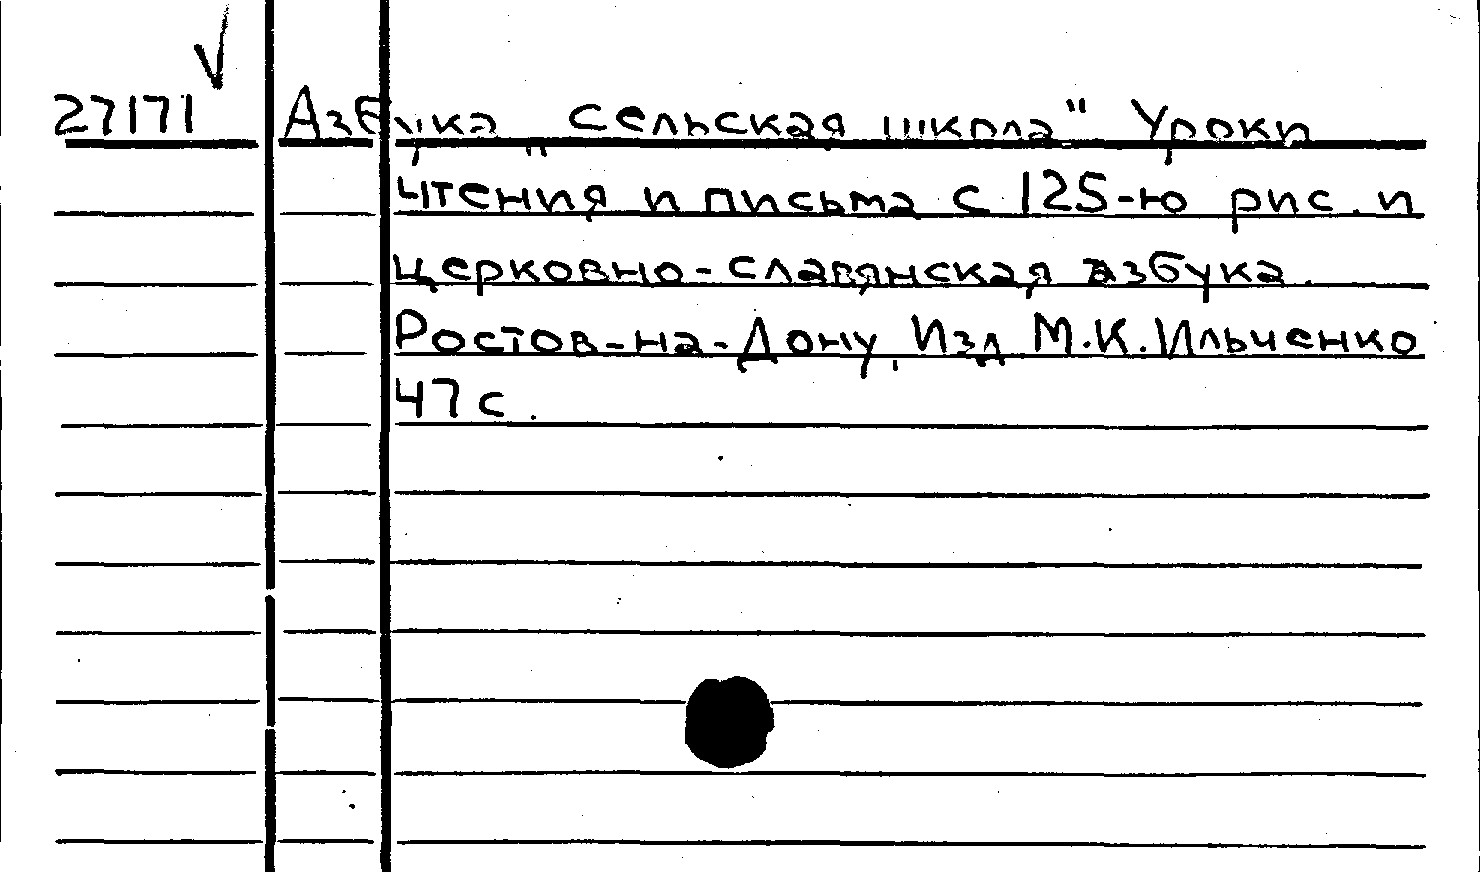 27171 Азбука „Сельская школа" Уроки
чтения и письма с 125-ю рис. и
церковно-славянская азбука.
Ростов-на-Дону, Изд М.К.Ильченко
47 с.